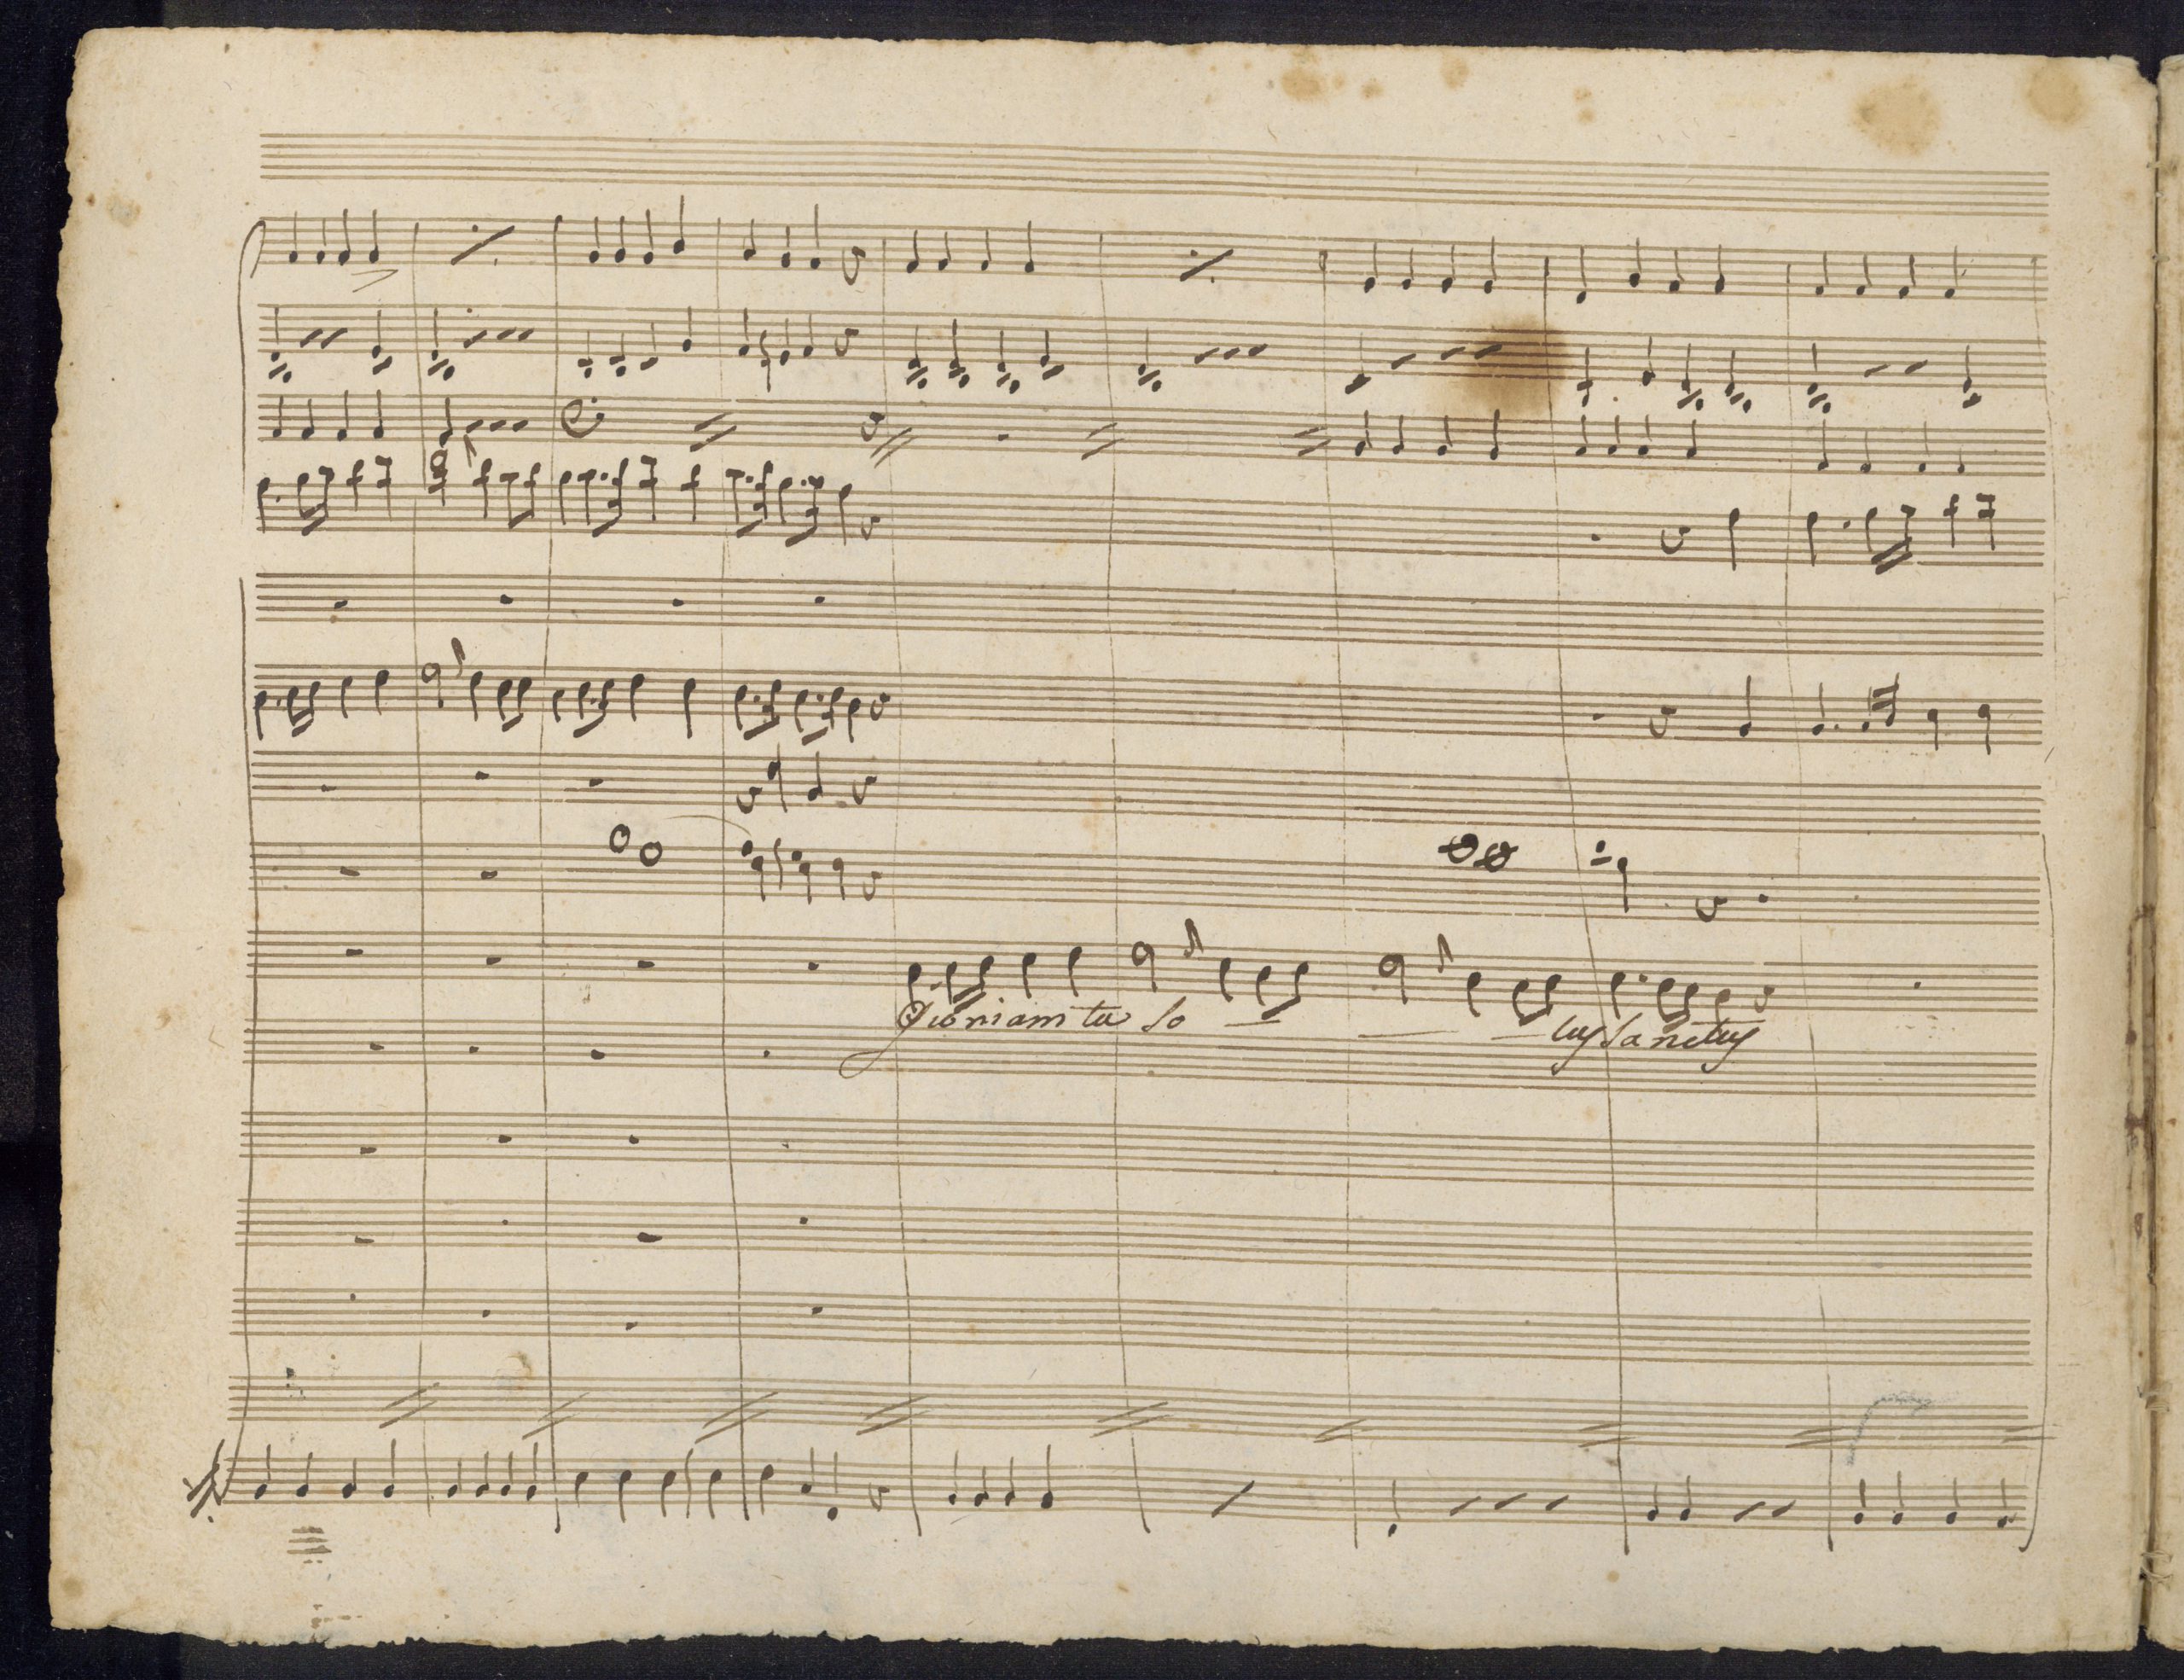 Quoniam tu so — — — lus sanctus